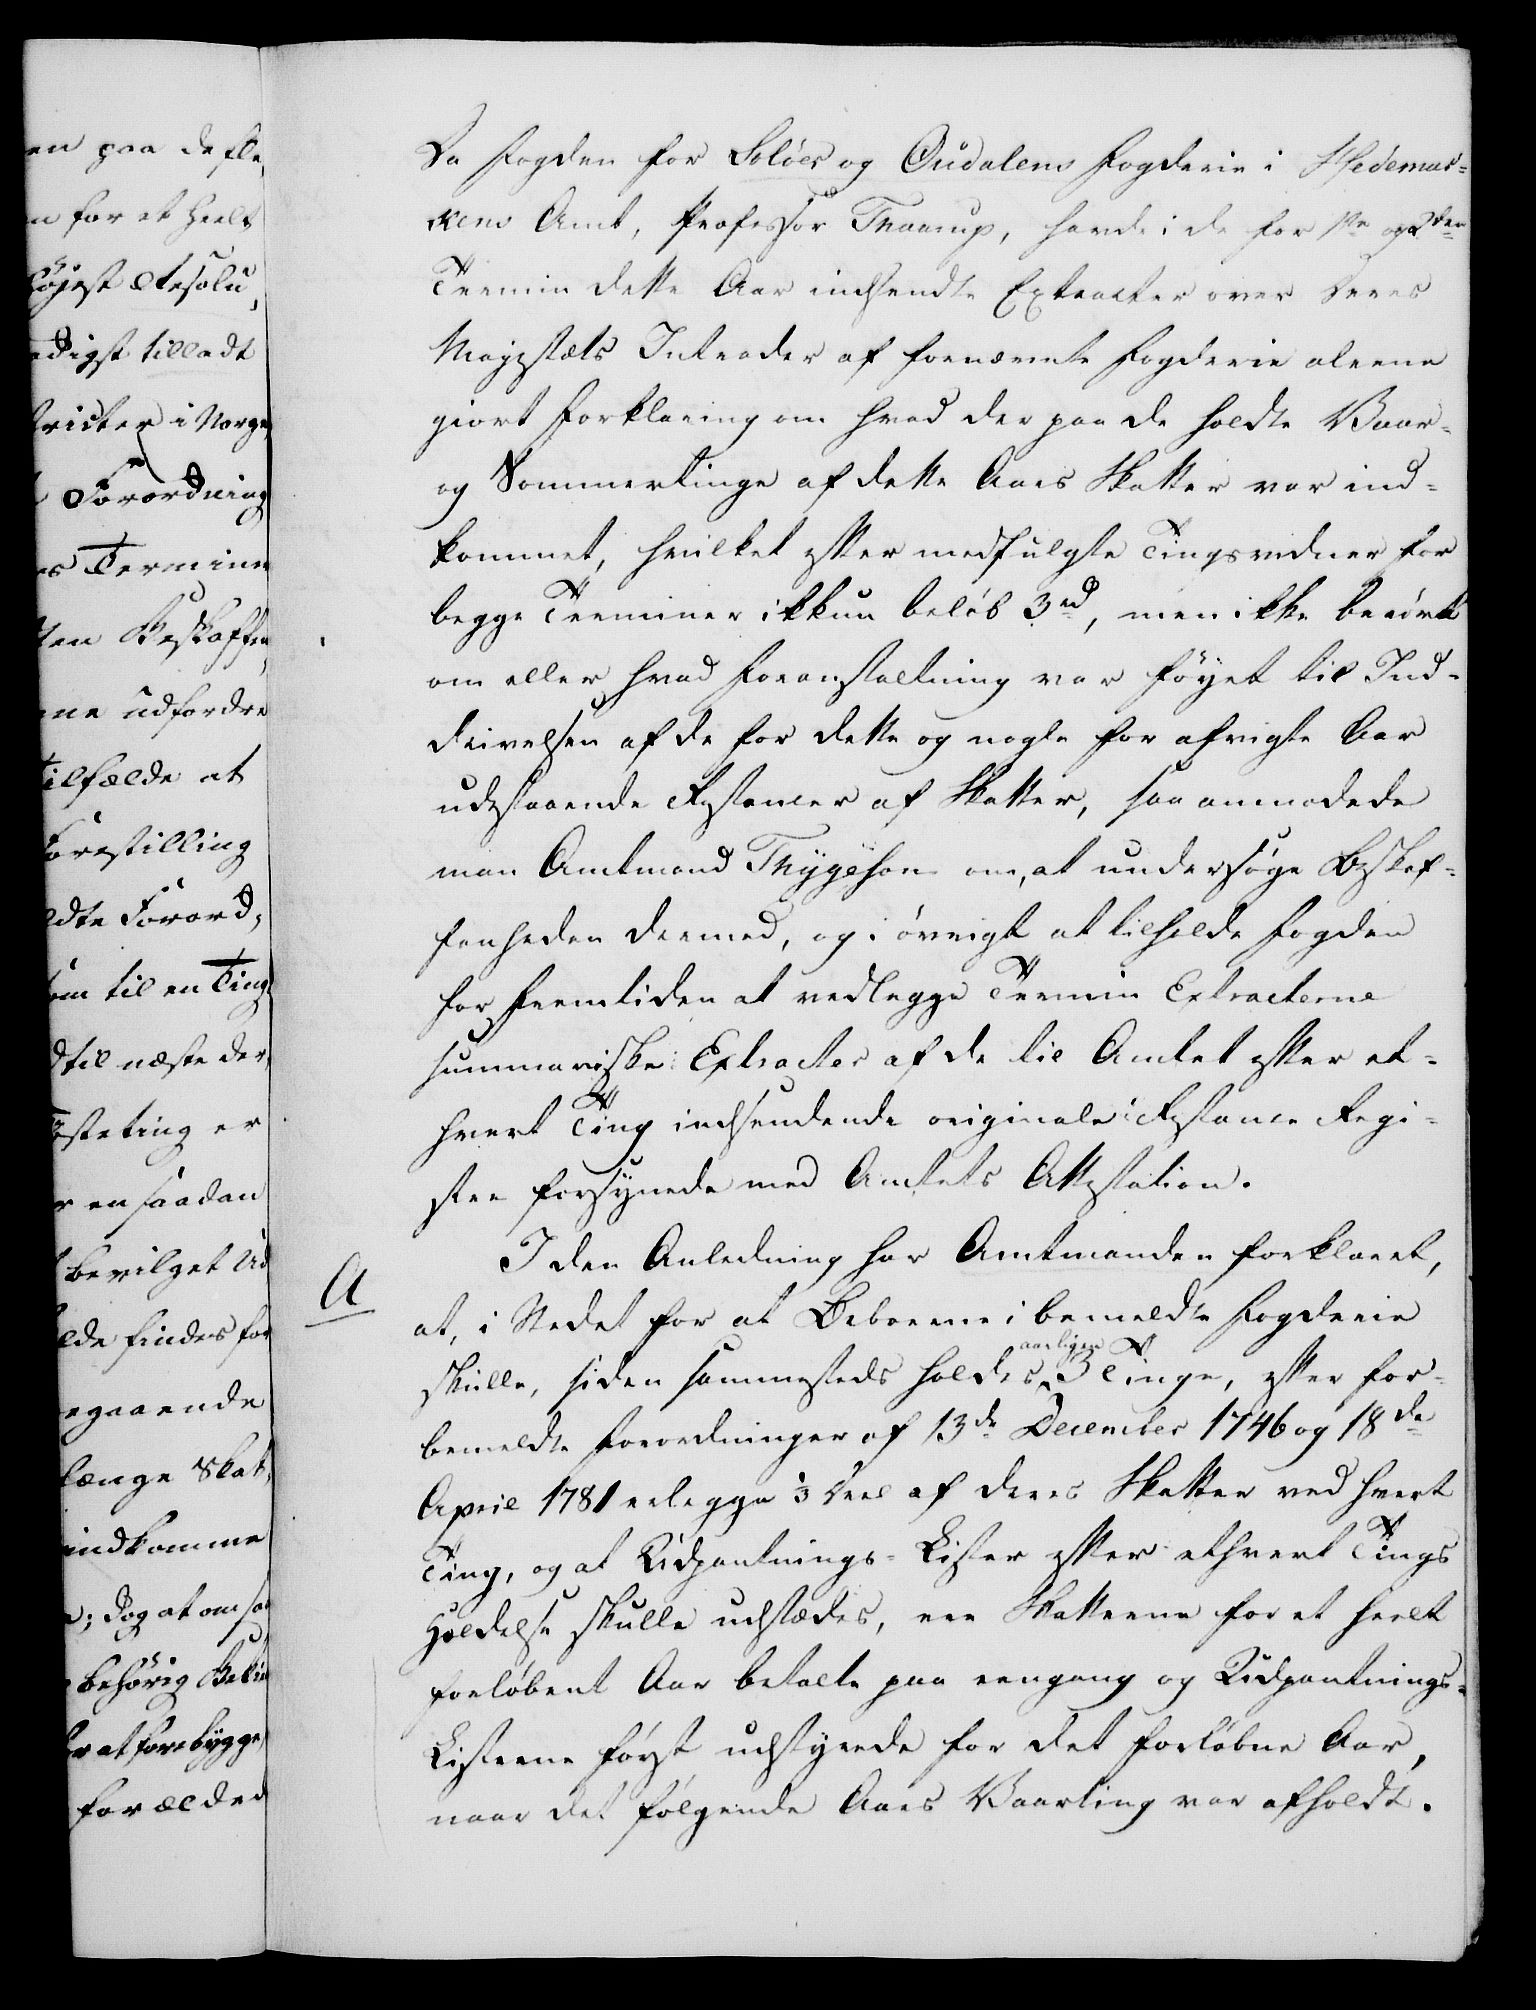 en paa de fle,
n for et heelt
höjest Resolu,
adigst tilladt
tricter i Norge,
Forordning
es Terminn
ten Beskaffen,
ne udfordre
Tilfælde at
Forestilling
ldte Forord,
om til en Ting
dtil næste der,
östeting er
r en saadan
bevilget Ud
lde findes for
egaaende
længe Skat,
indkomme
e; dog at om saa
behörig
r at forebygge,
forælded
Da Fogden for Solöer og Oudalens Fogderie i Hedemar=
kens Amt, Professor Thaarup, havde i de for 1ste og 2den
Termin dette Aar indsendte Extracter over Deres
Majestæts Intrader af fornævnte Fogderie alene
giort Forklaring om hvad der paa de holdte Vaar=
og Sommertinge af dette Aars Skatter var ind=
kommet, hvilket efter medfulgte Tingsvidner for
begge Terminer ikkun belöb 3 rd, men ikke berört
om eller hvad Foranstaltning var föyet til Ind=
drivelsen af de for dette og nogle for afvigte Aar
udestaaende Restancer af Skatter, saa anmodede
man Amtmand Thygeson om, at undersöge Beskaf=
fenheden dermed, og i övrigt at tilholde Fogden
for Fremtiden at vedlegge Termin Extracterne
summariske Extracter af de til Amtet efter et=
hvert Ting indsendende originale Restance Regi=
stre forsynede med Amtets Attestation.
I den Anledning har Amtmanden forklaret,
A
at, i Stedet for at Beboerne i bemeldte Fogderie
skulle, siden sammesteds holdes aarligen 3 Tinge, efter for=
bemeldte Forordninger af 13de December 1746 og 18de
April 1781 erlegge 1/3 Deel af deres Skatter ved hvert
Ting, og at Udpantnings= Lister efter ethvert Tings
Holdelse skulle udstædes, ere Skatterne for et heelt
forlöbent Aar betalte paa eengang og Udpantnings=
Listerne först udstyrede for det forlöbne Aar,
naar det fölgende Aars Vaarting var afholdt.